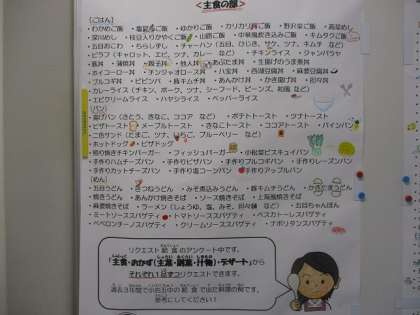 <主食の部>
[ごはん]
・わかめご飯 ・塩昆布ご飯 ・ゆかりご飯 ・カリカリ梅ご飯 ・野沢菜ご飯 ・高菜めし
・深川めし ・枝豆入りかやくご飯 ・山菜ご飯 ・豚丼 ・中華風炊き込みご飯 ・キムタクご飯
・五目おこわ ・ちらしずし ・チャーハン(五目、ひじき、ツナ、キムチ など)
・ピラフ(キャロット、エビ、ツナ、カレー など) ・チキンライス ・ジャンバラヤ
・豚丼 ・蒲焼丼 ・親子丼 ・他人丼 ・あぶ玉丼 ・生揚げのうま煮丼
・ホイコーロー丼 ・チンジャオロース丼 ・八宝丼 ・西湖豆腐丼 ・麻婆豆腐丼
・プルコギ丼 ・ビビンバ ・豚キムチ丼 ・あんかけ丼 ・かき揚げ丼
・カレーライス(チキン、ポーク、ツナ、シーフード、ビーンズ、和風 など)
・エビクリームライス ・ハヤシライス ・ペッパーライス
[パン]
・揚げパン(さとう、きなこ、ココア など) ・ポテトトースト ・ツナトースト
・ピザトースト ・メープルトースト ・きなこトースト ・ココアトースト ・パインパン
・二色サンド(たまご、ツナ、いちご、ブルーベリー など)
・ホットドッグ ・ピザドッグ
・照り焼きチキンバーガー ・フィッシュバーガー ・小松菜ビスキュイパン
・手作りハムチーズパン ・手作りピザパン ・手作りプルコギパン ・手作りレーズンパン
・手作りカレーチーズパン ・手作り塩コーンパン ・手作りアップルパン
[めん]
・五目うどん ・きつねうどん ・みそ煮込みうどん ・豚キムチうどん ・かきたまうどん
・焼きそば ・あんかけ焼きそば ・ソース焼きそば ・上海風焼きそば
・麻婆焼きそば ・ラーメン(しょうゆ、塩、みそ など) ・五目ちゃんぽん
・ミートソーススパゲティ ・トマトソーススパゲティ ・ペスカトーレスパゲティ
・ペペロンチーノスパゲティ ・クリームソーススパゲティ ・ナポリタンスパゲティ
リクエスト給食のアンケート中です。
「主食・おかず(主菜・副菜・汁物)・デザート」から
それぞれ1品ずつリクエストできます。
参考にしてください!